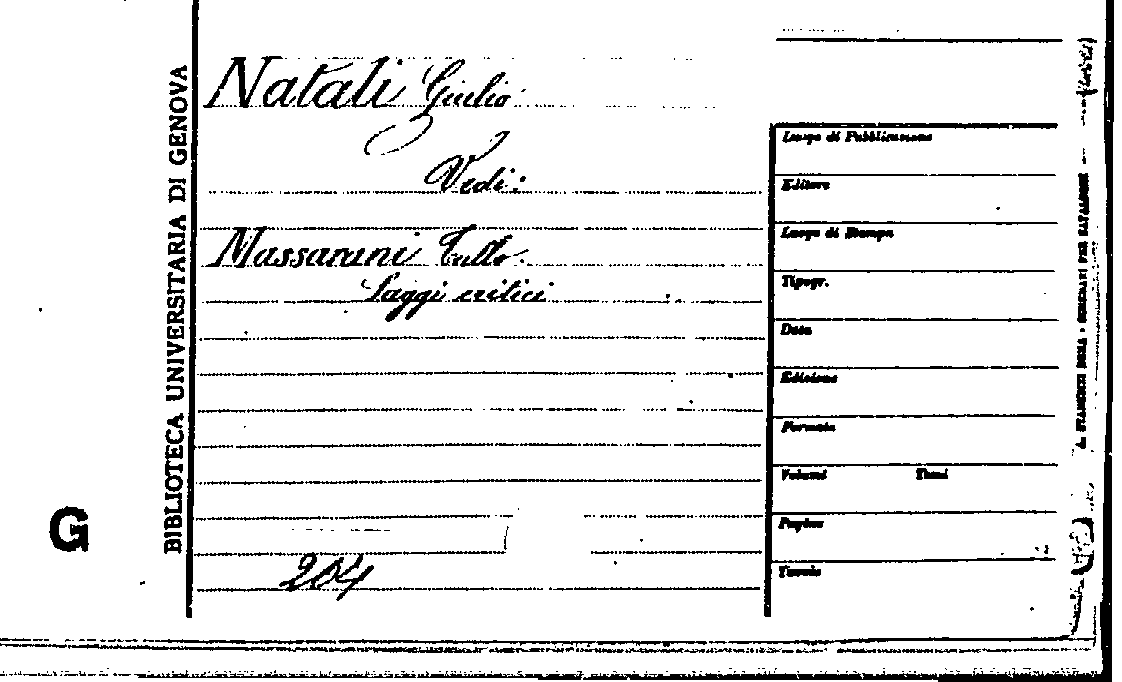 Natali Giulio
Vedi:
Massarani Tullo
Saggi critici
204
BIBLIOTECA UNIVERSITARIA DI GENOVA
G
Luogo di Pubblicazione
Editore
Luogo di Stampa
Tipogr.
Data
Edizione
Formato
Volumi Tomi
Pagine
Tavole